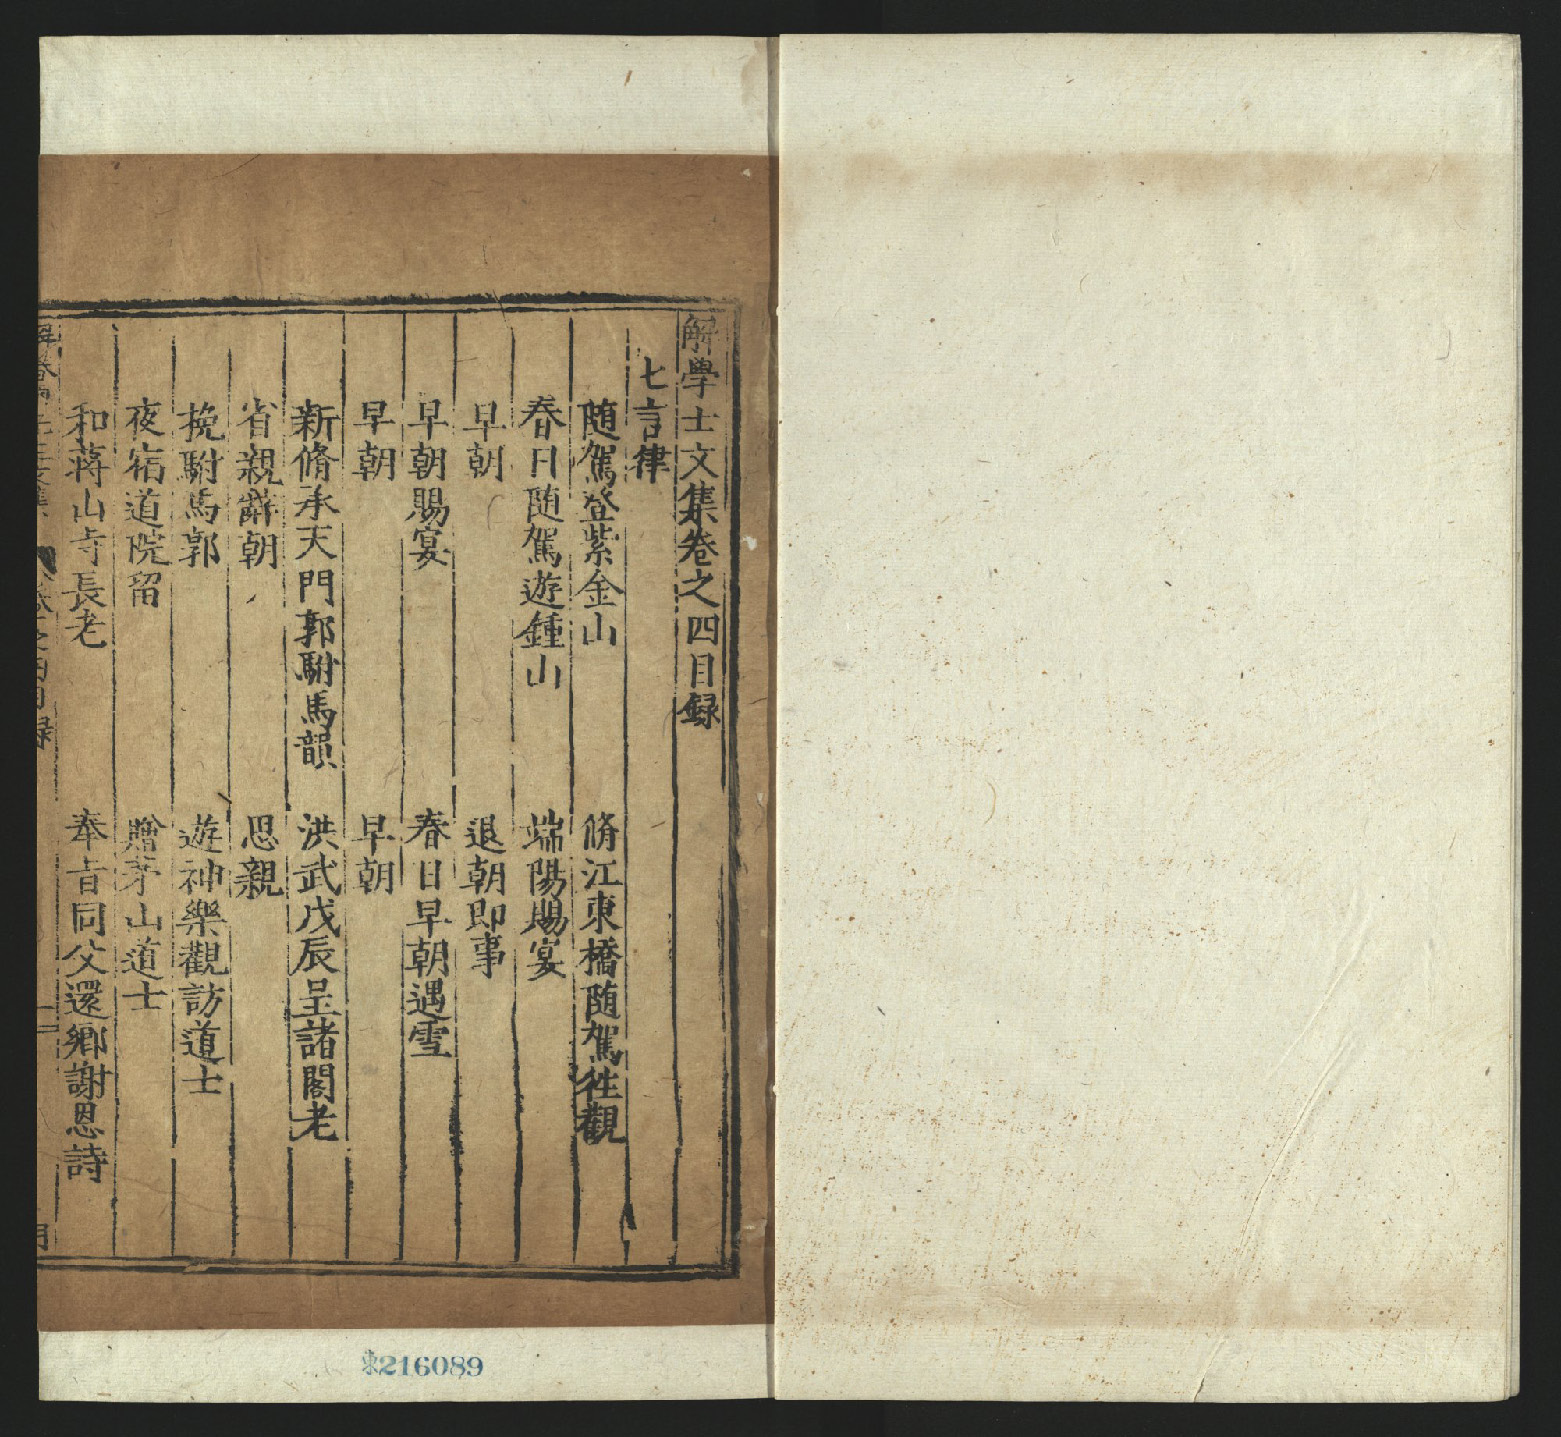 解學士文集卷之四目録
七言律
随駕登紫金山　脩江東橋随駕徃觀
春日随駕遊鍾山　端陽賜宴
早朝　退朝即事
早朝賜宴　春日早朝遇雪
早朝　早朝
新脩承天門郭駙馬韻　洪武戊辰呈諸閣老
省親辭朝　思親
挽駙馬郭　遊神樂觀訪道士
夜宿道院留　贈茅山道士
和蒋山寺長老　奉旨同父還鄉謝恩詩
216089